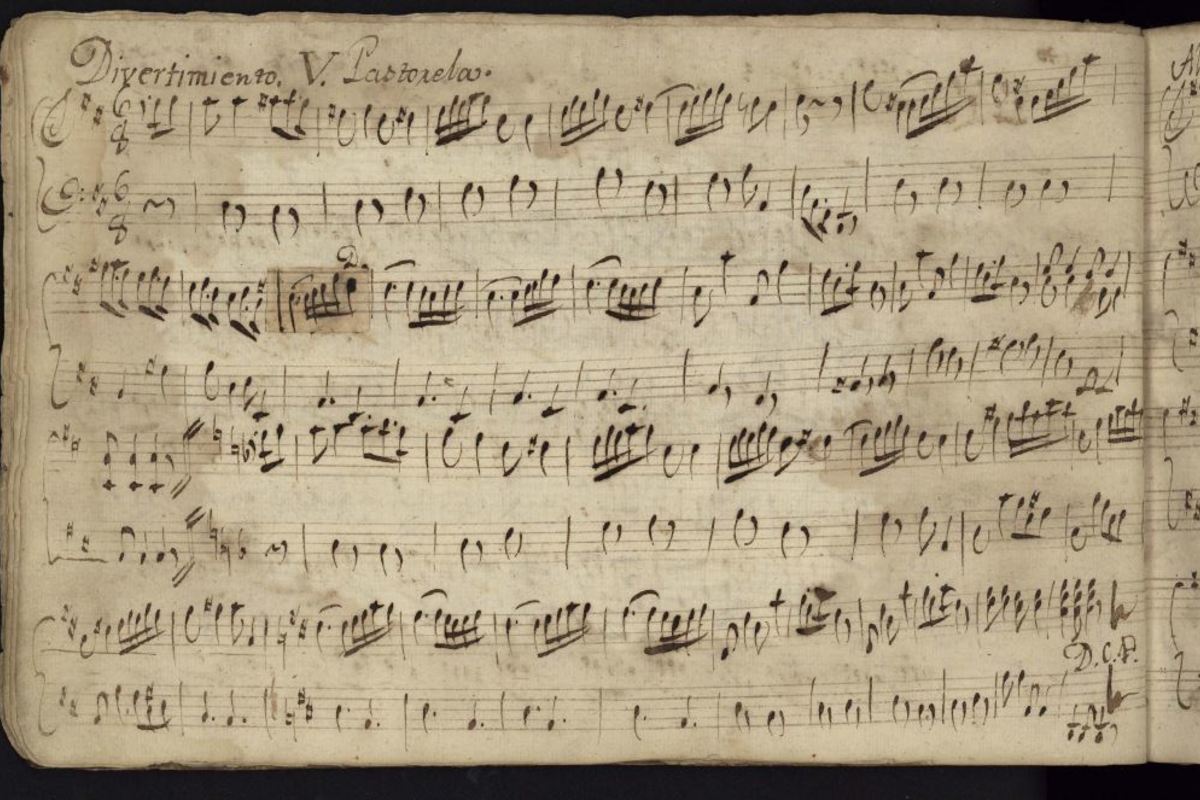 Divertimiento. V. Pastorela.
6
8
6
8
D.
D.C.